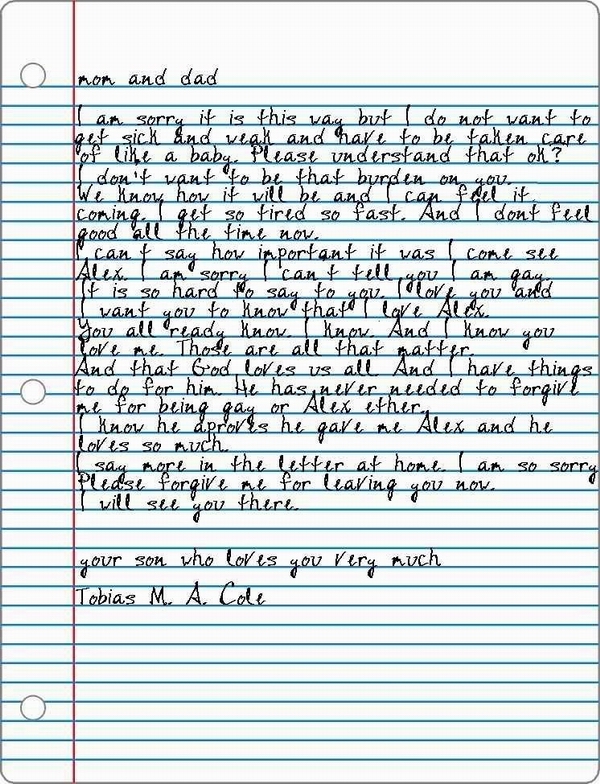 mom and dad
I am sorry it is this way but I do not want to
get sick and weak and have to be taken care
of like a baby. Please understand that ok?
I don't want to be that burden on you.
We know how it will be and I can feel it
coming. I get so tired so fast. And I dont feel
good all the time now.
I can't say how important it was I come see
Alex. I am sorry I can't tell you I am gay.
It is so hard to say to you. I love you and
I want you to know that I love Alex.
You all ready know. I know. And I know you
love me. Those are all that matter.
And that God loves us all. And I have things
to do for him. He has never needed to forgive
me for being gay or Alex ether.
I know he aproves he gave me Alex and he
loves so much.
I say more in the letter at home. I am so sorry
Please forgive me for leaving you now.
I will see you there.
your son who loves you very much
Tobias M. A. Cole